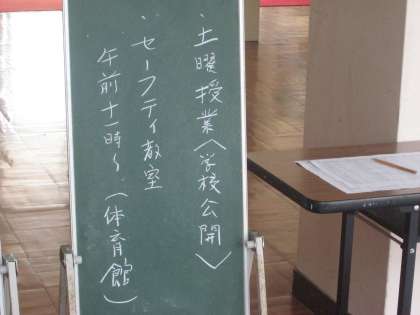 、土曜授業〈学校公開〉
、セーフティ教室
午前十一時〜(体育館)